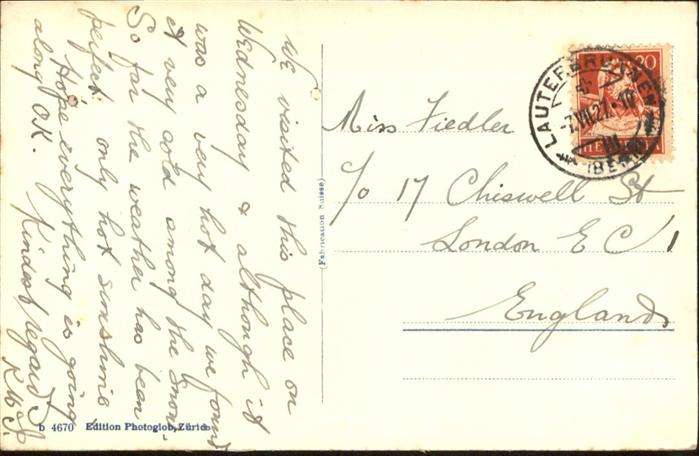 We visited this place on
Wednesday & although it
was a very hot day we found
it very cold among the snow.
So far the weather has been
perfect, only hot sunshine.
Hope everything is going
along O.K. Kindest regards
Miss Fiedler
c/o 17 Chiswell St
London E C 1
England
20
LAUTERBRUNNEN
(BERN)
HELVETIA
(Fabrication Suisse)
b 4670 Edition Photoglob, Zürich